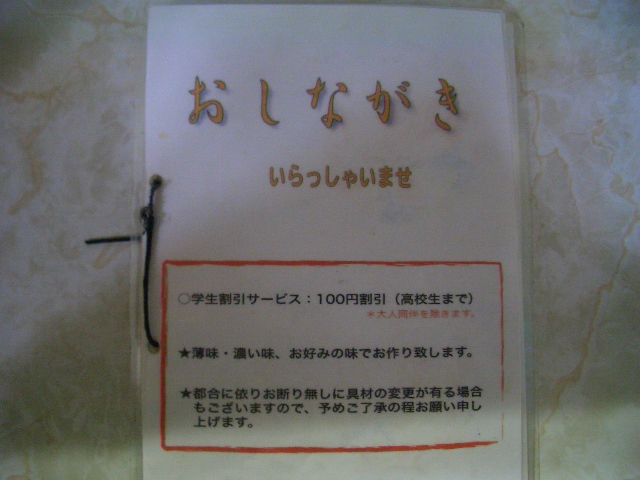 おしながき
いらっしゃいませ
○学生割引サービス：100円割引（高校生まで）
＊大人同伴を除きます。
★薄味・濃い味、お好みの味でお作り致します。
★都合に依りお断り無しに具材の変更が有る場合
もございますので、予めご了承の程お願い申し
上げます。